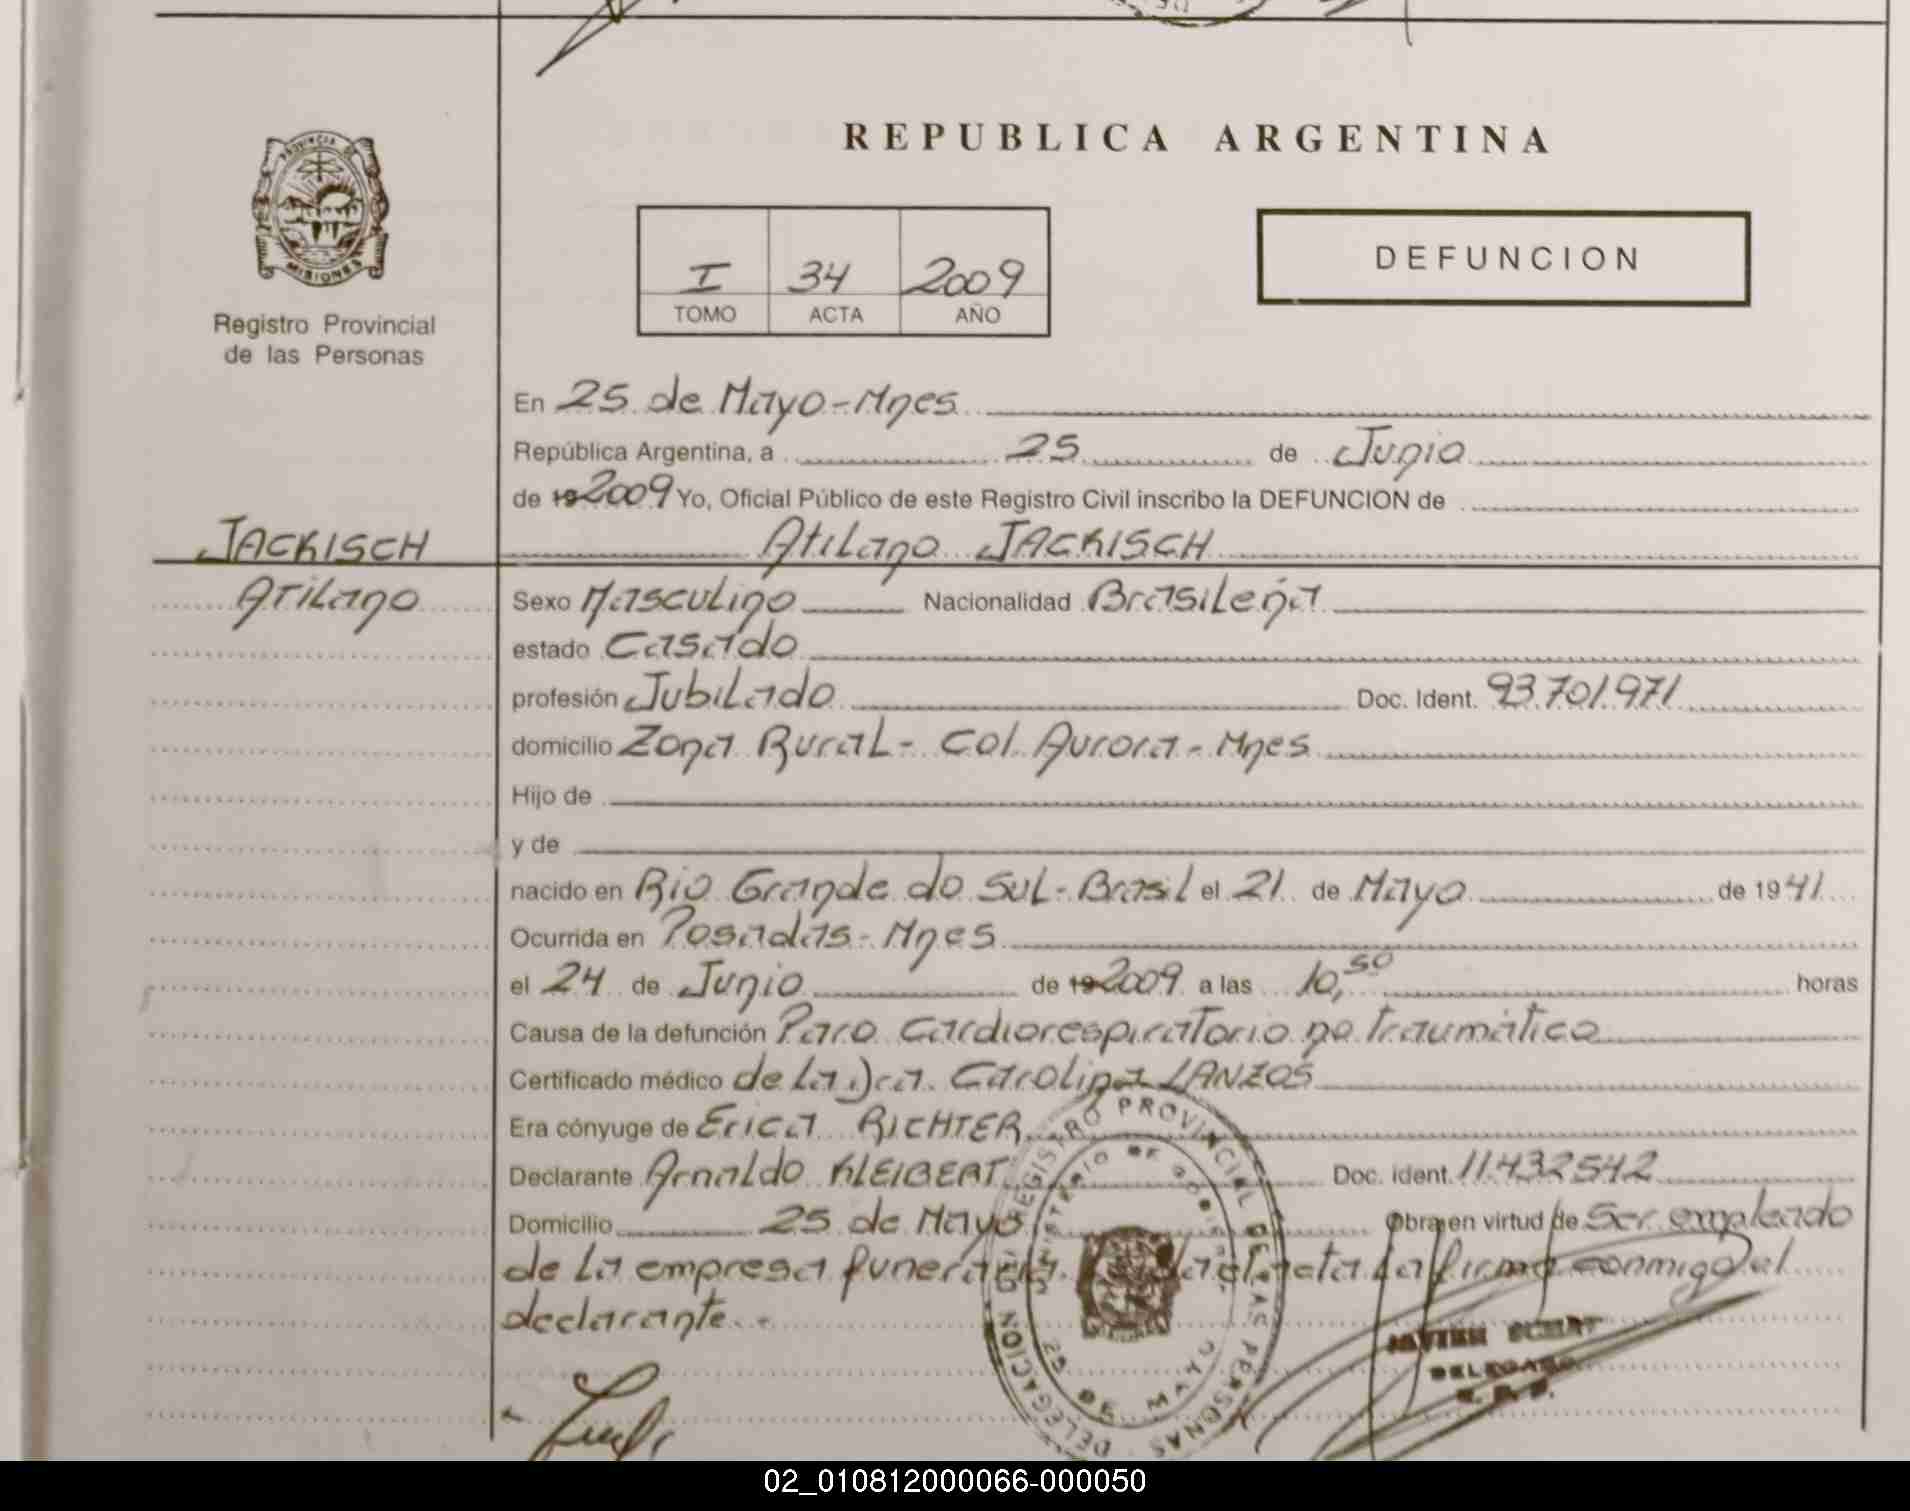 REPUBLICA ARGENTINA
PROVINCIA DE
MISIONES
Registro Provincial
de las Personas
I 34 2009
TOMO ACTA AÑO
DEFUNCION
En 25 de Mayo-Mnes
República Argentina, a 25 de Junio
de 19 2009 Yo, Oficial Público de este Registro Civil inscribo la DEFUNCION de
JACKISCH
Atilano
Atilano JACKISCH
Sexo Masculino Nacionalidad Brasileña
estado Casado
profesión Jubilado Doc. Ident. 93.701.971
domicilio Zona Rural- Col. Aurora-Mnes
Hijo de
y de
nacido en Rio Grande do Sul-Brasil el 21 de Mayo de 1941
Ocurrida en Posadas-Mnes
el 24 de Junio de 19 2009 a las 10,50 horas
Causa de la defunción Paro Cardiorespiratorio no traumático
Certificado médico de la Dra. Carolina LANZOS
Era cónyuge de Erica RICHTER
Declarante Arnaldo KLEIBERT Doc. ident. 11.432542
Domicilio 25 de Mayo Obra en virtud de Ser empleado
de la empresa funeraria. acta la firma conmigo el
declarante.-
DELEGACION DEL REGISTRO PROVINCIAL DE LAS PERSONAS
MINISTERIO DE GOBIERNO
25 DE MAYO
JAVIER
DELEGADO
02_010812000066-000050